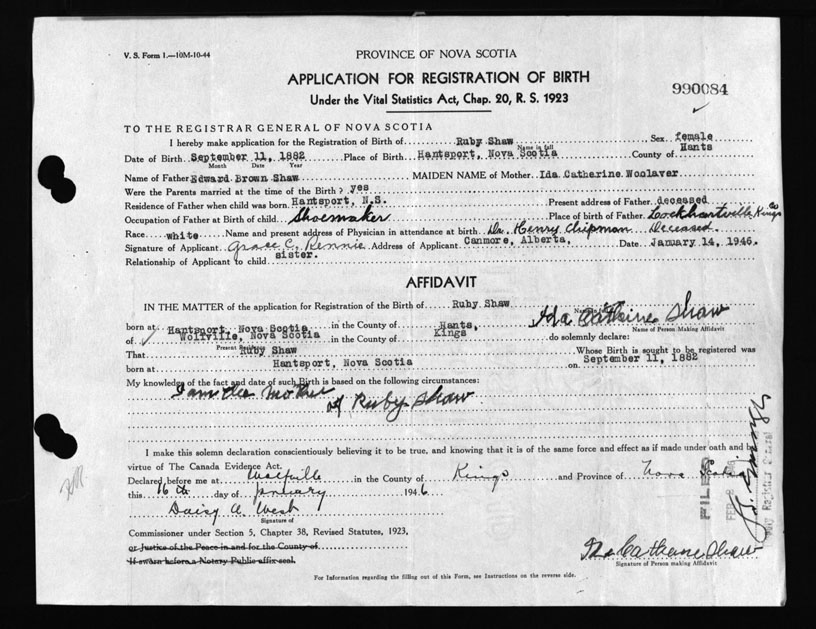 V. S. Form 1.—10M-10-44
PROVINCE OF NOVA SCOTIA
APPLICATION FOR REGISTRATION OF BIRTH
Under the Vital Statistics Act, Chap. 20, R. S. 1923
990084
TO THE REGISTRAR GENERAL OF NOVA SCOTIA
I hereby make application for the Registration of Birth of Ruby Shaw Sex female
Name in full
Date of Birth September 11, 1882 Place of Birth Hantsport, Nova Scotia County of Hants
Month Date Year
Name of Father Edward Brown Shaw MAIDEN NAME of Mother Ida Catherine Woolaver
Were the Parents married at the time of the Birth? yes
Residence of Father when child was born Hantsport, N.S. Present address of Father deceased
Occupation of Father at Birth of child Shoemaker Place of birth of Father Lockhartville Kings Co
Race white Name and present address of Physician in attendance at birth Dr. Henry Chipman Deceased.
Signature of Applicant Grace C. Rennie Address of Applicant Canmore, Alberta, Date January 14, 1946.
Relationship of Applicant to child sister.
AFFIDAVIT
IN THE MATTER of the application for Registration of the Birth of Ruby Shaw
born at Hantsport, Nova Scotia in the County of Hants, Ida Catherine Shaw
Name of Person Making Affidavit
of Wolfville, Nova Scotia in the County of Kings do solemnly declare:
Present Residence
That Ruby Shaw Whose Birth is sought to be registered was
born at Hantsport, Nova Scotia on September 11, 1882
My knowledge of the fact and date of such Birth is based on the following circumstances:
I am the mother
of Ruby Shaw
I make this solemn declaration conscientiously believing it to be true, and knowing that it is of the same force and effect as if made under oath and by
virtue of The Canada Evidence Act.
Declared before me at Wolfville in the County of Kings and Province of Nova Scotia
this 16th day of January 1946
Daisy A. West
Signature of
Commissioner under Section 5, Chapter 38, Revised Statutes, 1923,
or Justice of the Peace in and for the County of
If sworn before a Notary Public affix seal.
Ida Catherine Shaw
Signature of Person making Affidavit
FILED
For Information regarding the filling out of this Form, see Instructions on the reverse side.